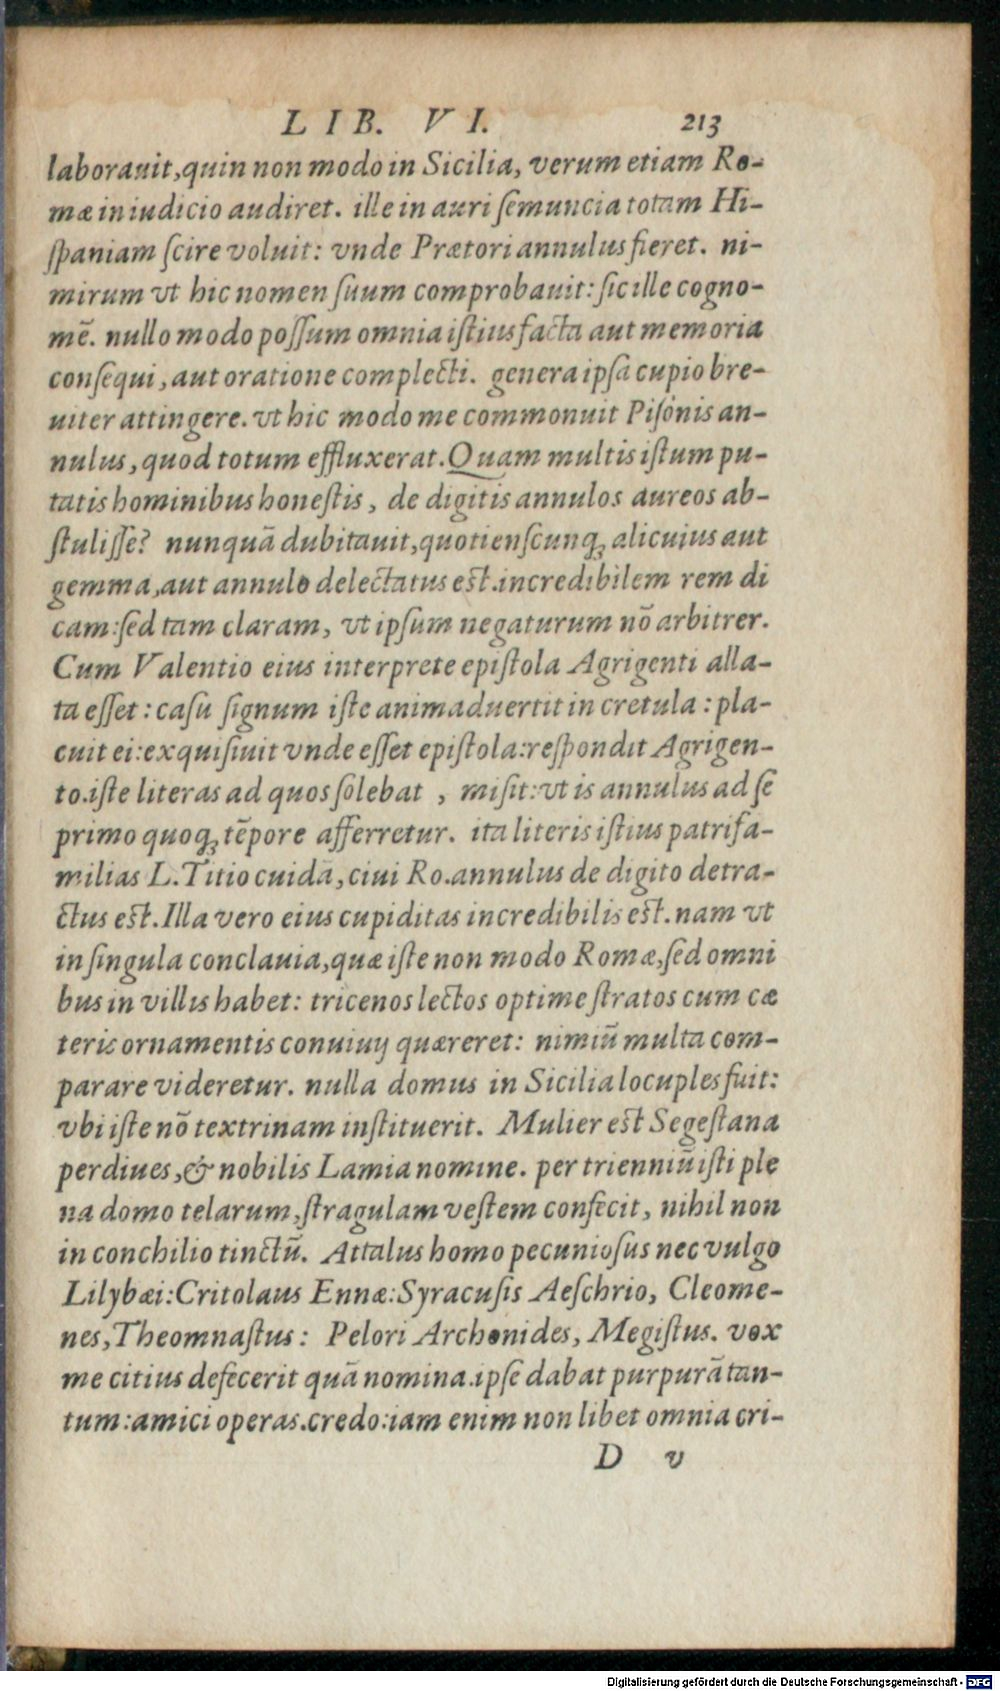 LIB. VI. 213
laborauit,quin non modo in Sicilia, verum etiam Ro-
mæ in iudicio audiret. ille in auri ſemuncia totam Hi-
ſpaniam ſcire voluit: vnde Prætori annulus fieret. ni-
mirum vt hic nomen ſuum comprobauit: ſic ille cogno-
mē. nullo modo poſſum omnia iſtius facta aut memoria
conſequi, aut oratione complecti. genera ipſa cupio bre-
uiter attingere. vt hic modo me commonuit Piſonis an-
nulus, quod totum effluxerat. Quam multis iſtum pu-
tatis hominibus honeſtis, de digitis annulos aureos ab-
ſtuliſſe? nunquā dubitauit, quotienſcunq; alicuius aut
gemma, aut annulo delectatus eſt. incredibilem rem di
cam: ſed tam claram, vt ipſum negaturum nō arbitrer.
Cum Valentio eius interprete epiſtola Agrigenti alla-
ta eſſet: caſu ſignum iſte animaduertit in cretula: pla-
cuit ei: exquiſiuit vnde eſſet epiſtola: reſpondit Agrigen-
to. iſte literas ad quos ſolebat , miſit: vt is annulus ad ſe
primo quoq; tēpore afferretur. ita literis iſtius patrifa-
milias L. Titio cuidā, ciui Ro. annulus de digito detra-
ctus eſt. Illa vero eius cupiditas incredibilis eſt. nam vt
in ſingula conclauia, quæ iſte non modo Romæ, ſed omni
bus in villis habet: tricenos lectos optime ſtratos cum cæ
teris ornamentis conuiuij quæreret: nimiū multa com-
parare videretur. nulla domus in Sicilia locuples fuit:
vbi iſte nō textrinam inſtituerit. Mulier eſt Segeſtana
perdiues, & nobilis Lamia nomine. per trienniū iſti ple
na domo telarum, ſtragulam veſtem confecit, nihil non
in conchilio tinctū. Attalus homo pecunioſus nec vulgo
Lilybæi: Critolaus Ennæ: Syracuſis Aeſchrio, Cleome-
nes, Theomnaſtus: Pelori Archonides, Megiſtus. vox
me citius defecerit quā nomina. ipſe dabat purpurā tan-
tum: amici operas. credo: iam enim non libet omnia cri-
D v
Digitalisierung gefördert durch die Deutsche Forschungsgemeinschaft - DFG